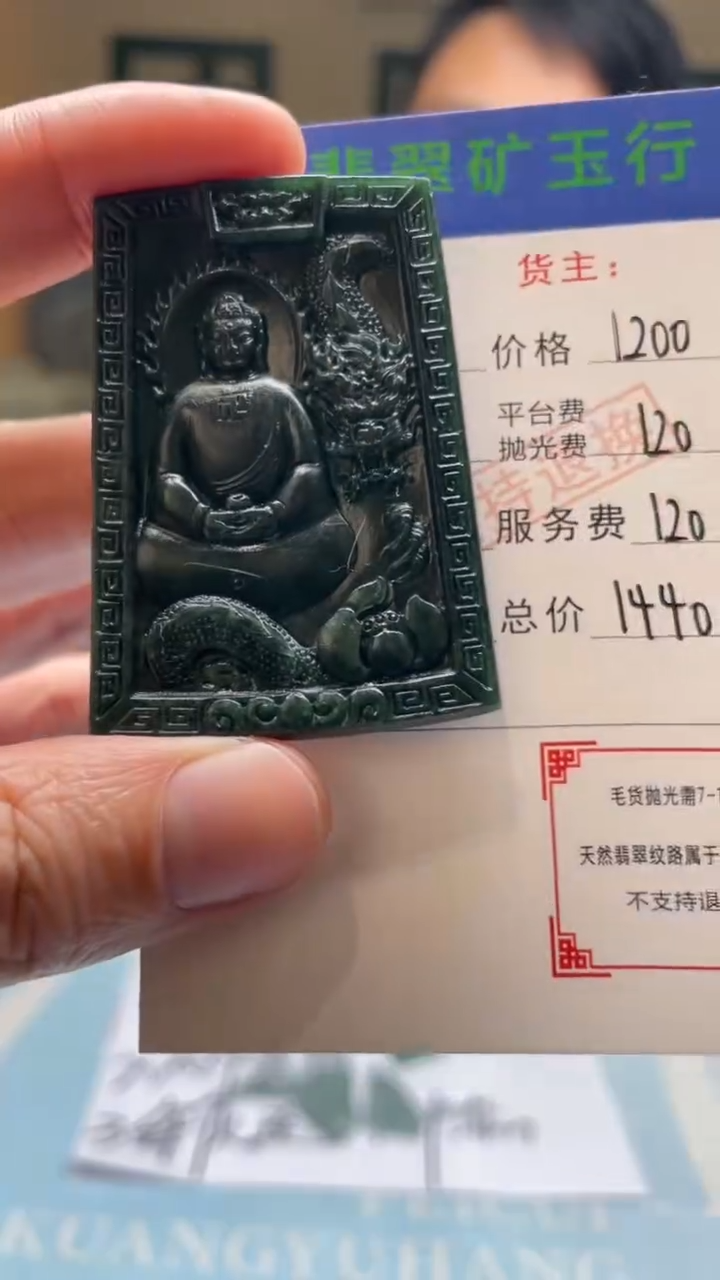 翡翠矿玉行
货主：
价格 1200
平台费
抛光费 120
服务费 120
总价 1440
持退换
毛货抛光需7-1
天然翡翠纹路属于
不支持退
KUANGYUHANG